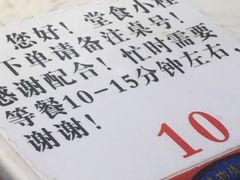 您好！堂食小程
下单请备注桌号！
感谢配合！忙时需要
等餐10-15分钟左右，
谢谢！
10